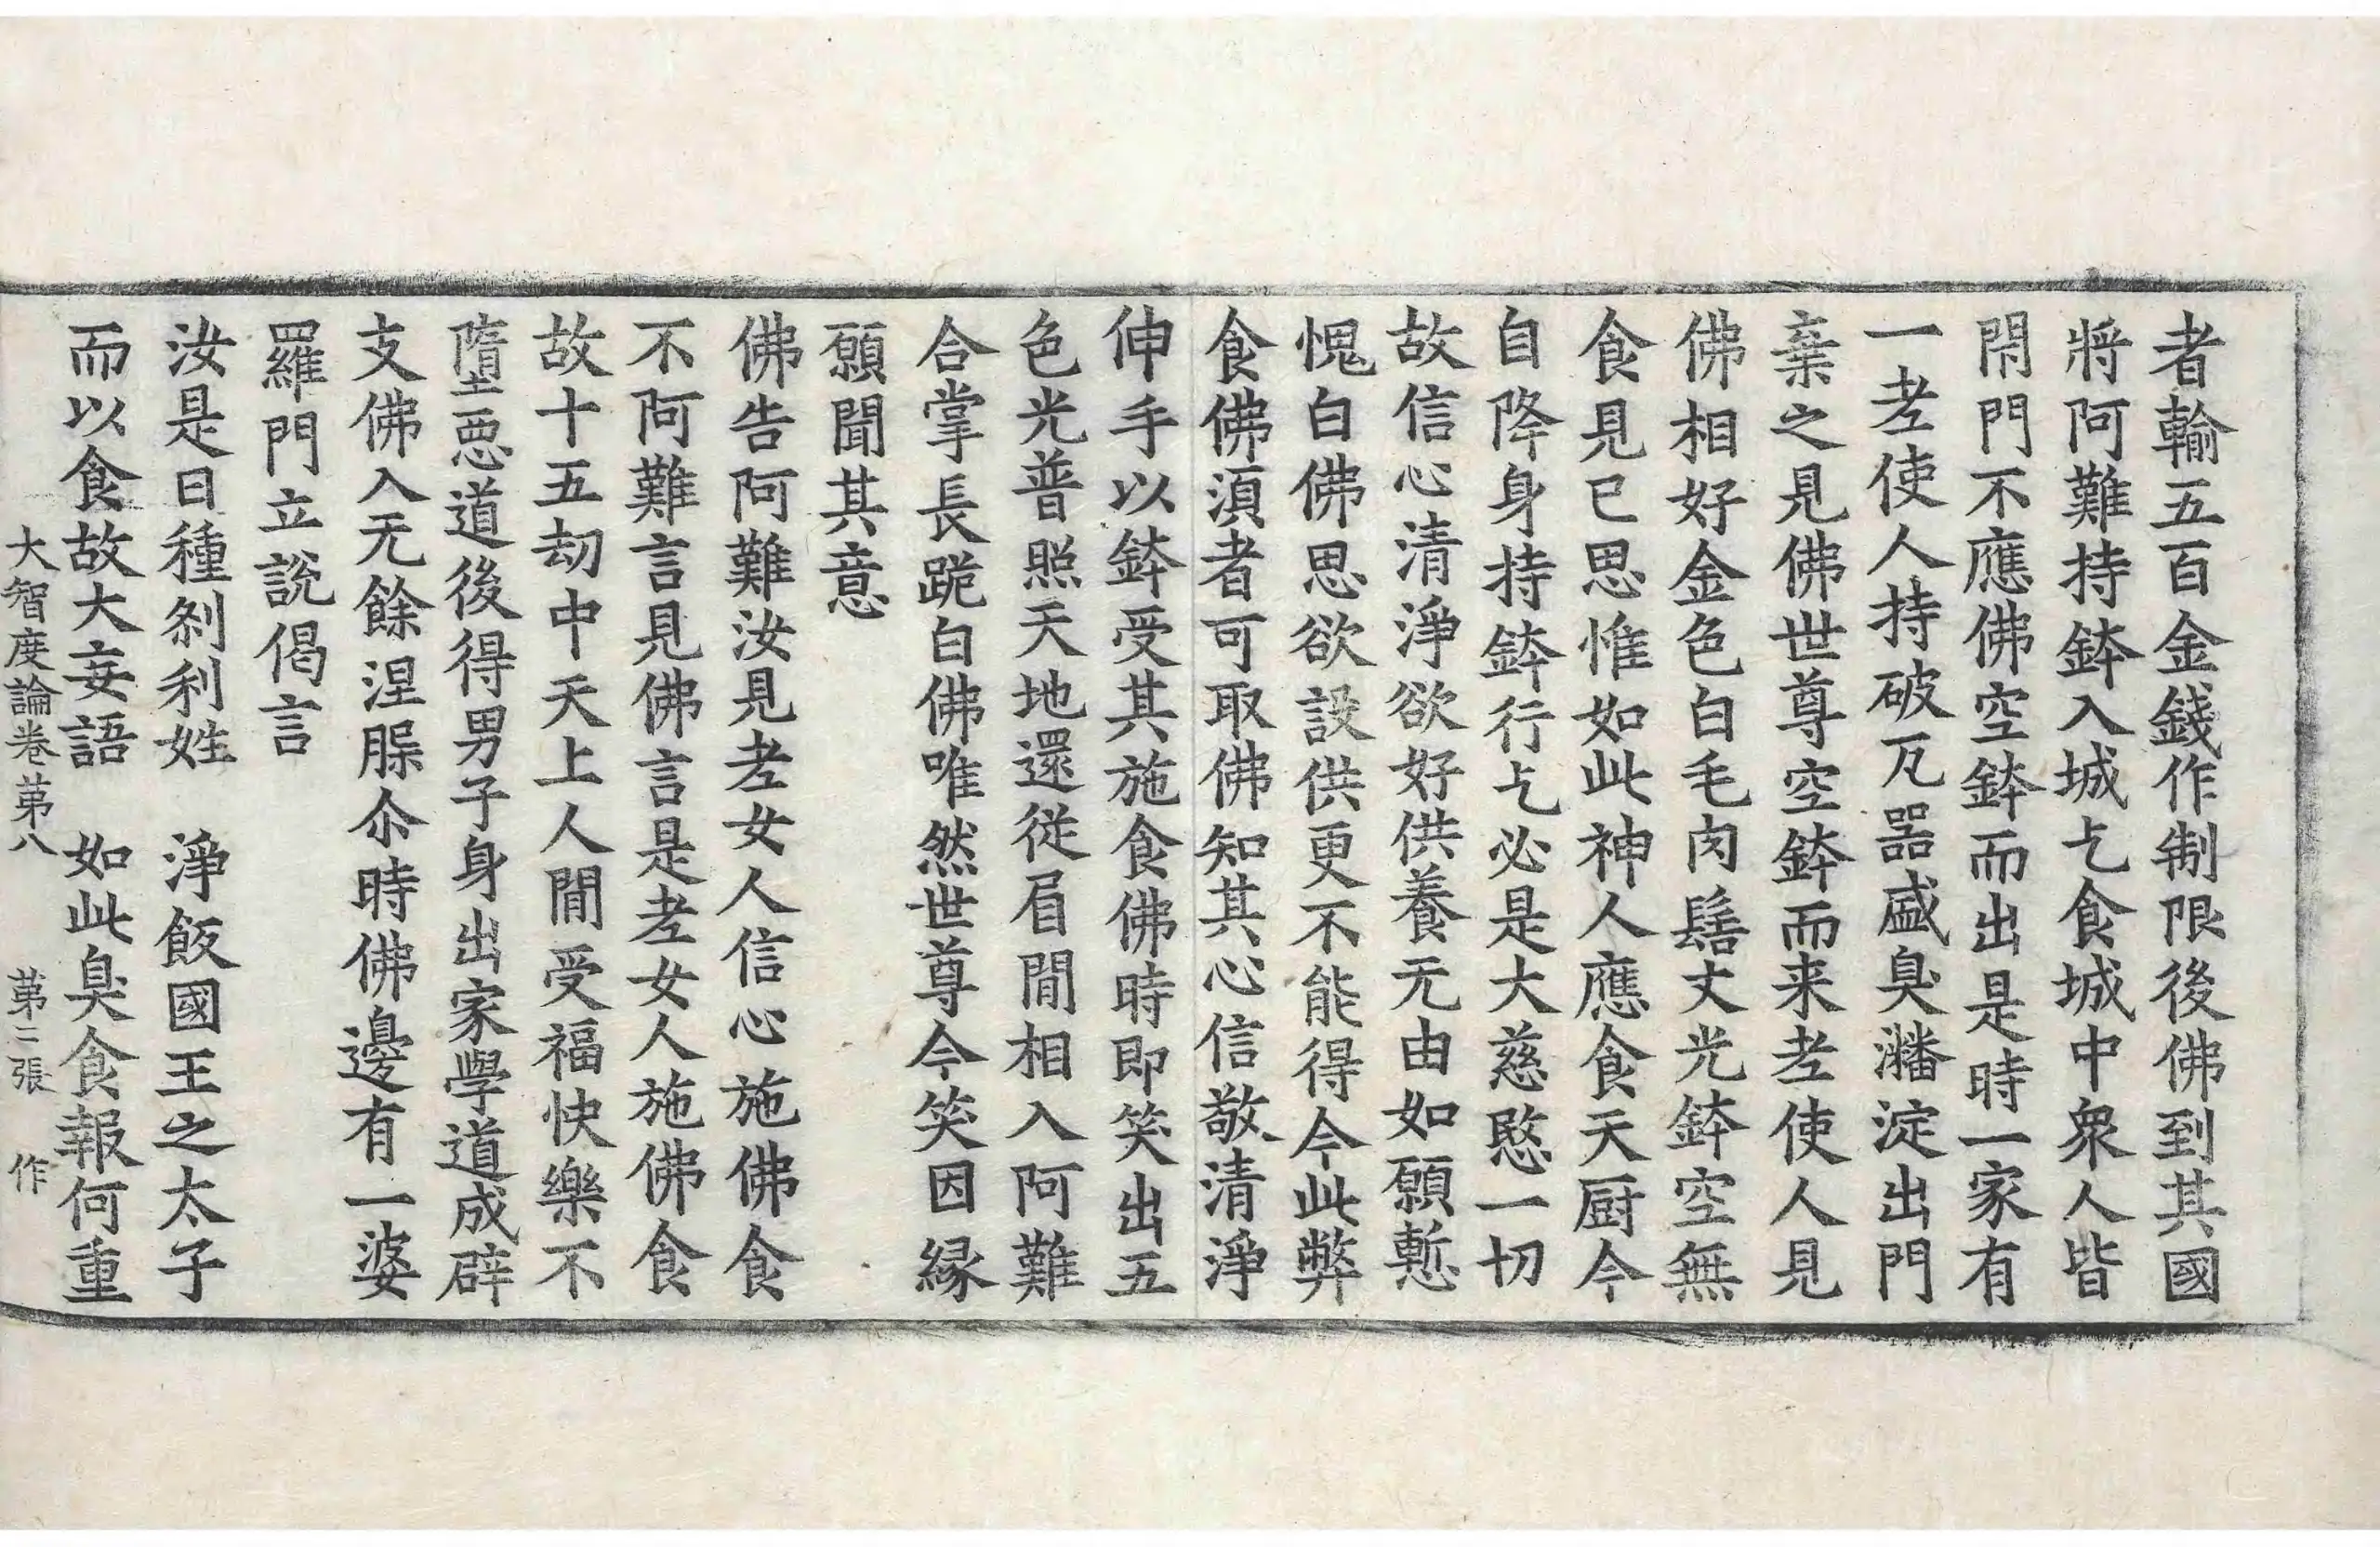 者輸五百金錢作制限後佛到其國
將阿難持鉢入城乞食城中衆人皆
閇門不應佛空鉢而出是時一家有
一老使人持破瓦器盛臭瀋淀出門
棄之見佛世尊空鉢而来老使人見
佛相好金色白毛肉髻丈光鉢空無
食見已思惟如此神人應食天厨今
自降身持鉢行乞必是大慈愍一切
故信心清淨欲好供養无由如願慙
愧白佛思欲設供更不能得今此弊
食佛湏者可取佛知其心信敬清淨
伸手以鉢受其施食佛時即笑出五
色光普照天地還從眉間相入阿難
合掌長跪白佛唯然世尊今笑因縁
願聞其意
佛告阿難汝見老女人信心施佛食
不阿難言見佛言是老女人施佛食
故十五劫中天上人間受福快樂不
墮惡道後得男子身出家學道成辟
支佛入无餘涅槃尒時佛邊有一婆
羅門立說偈言
汝是日種剎利姓　淨飯國王之太子
而以食故大妄語　如此臭食報何重
大智度論卷第八　第二張　作